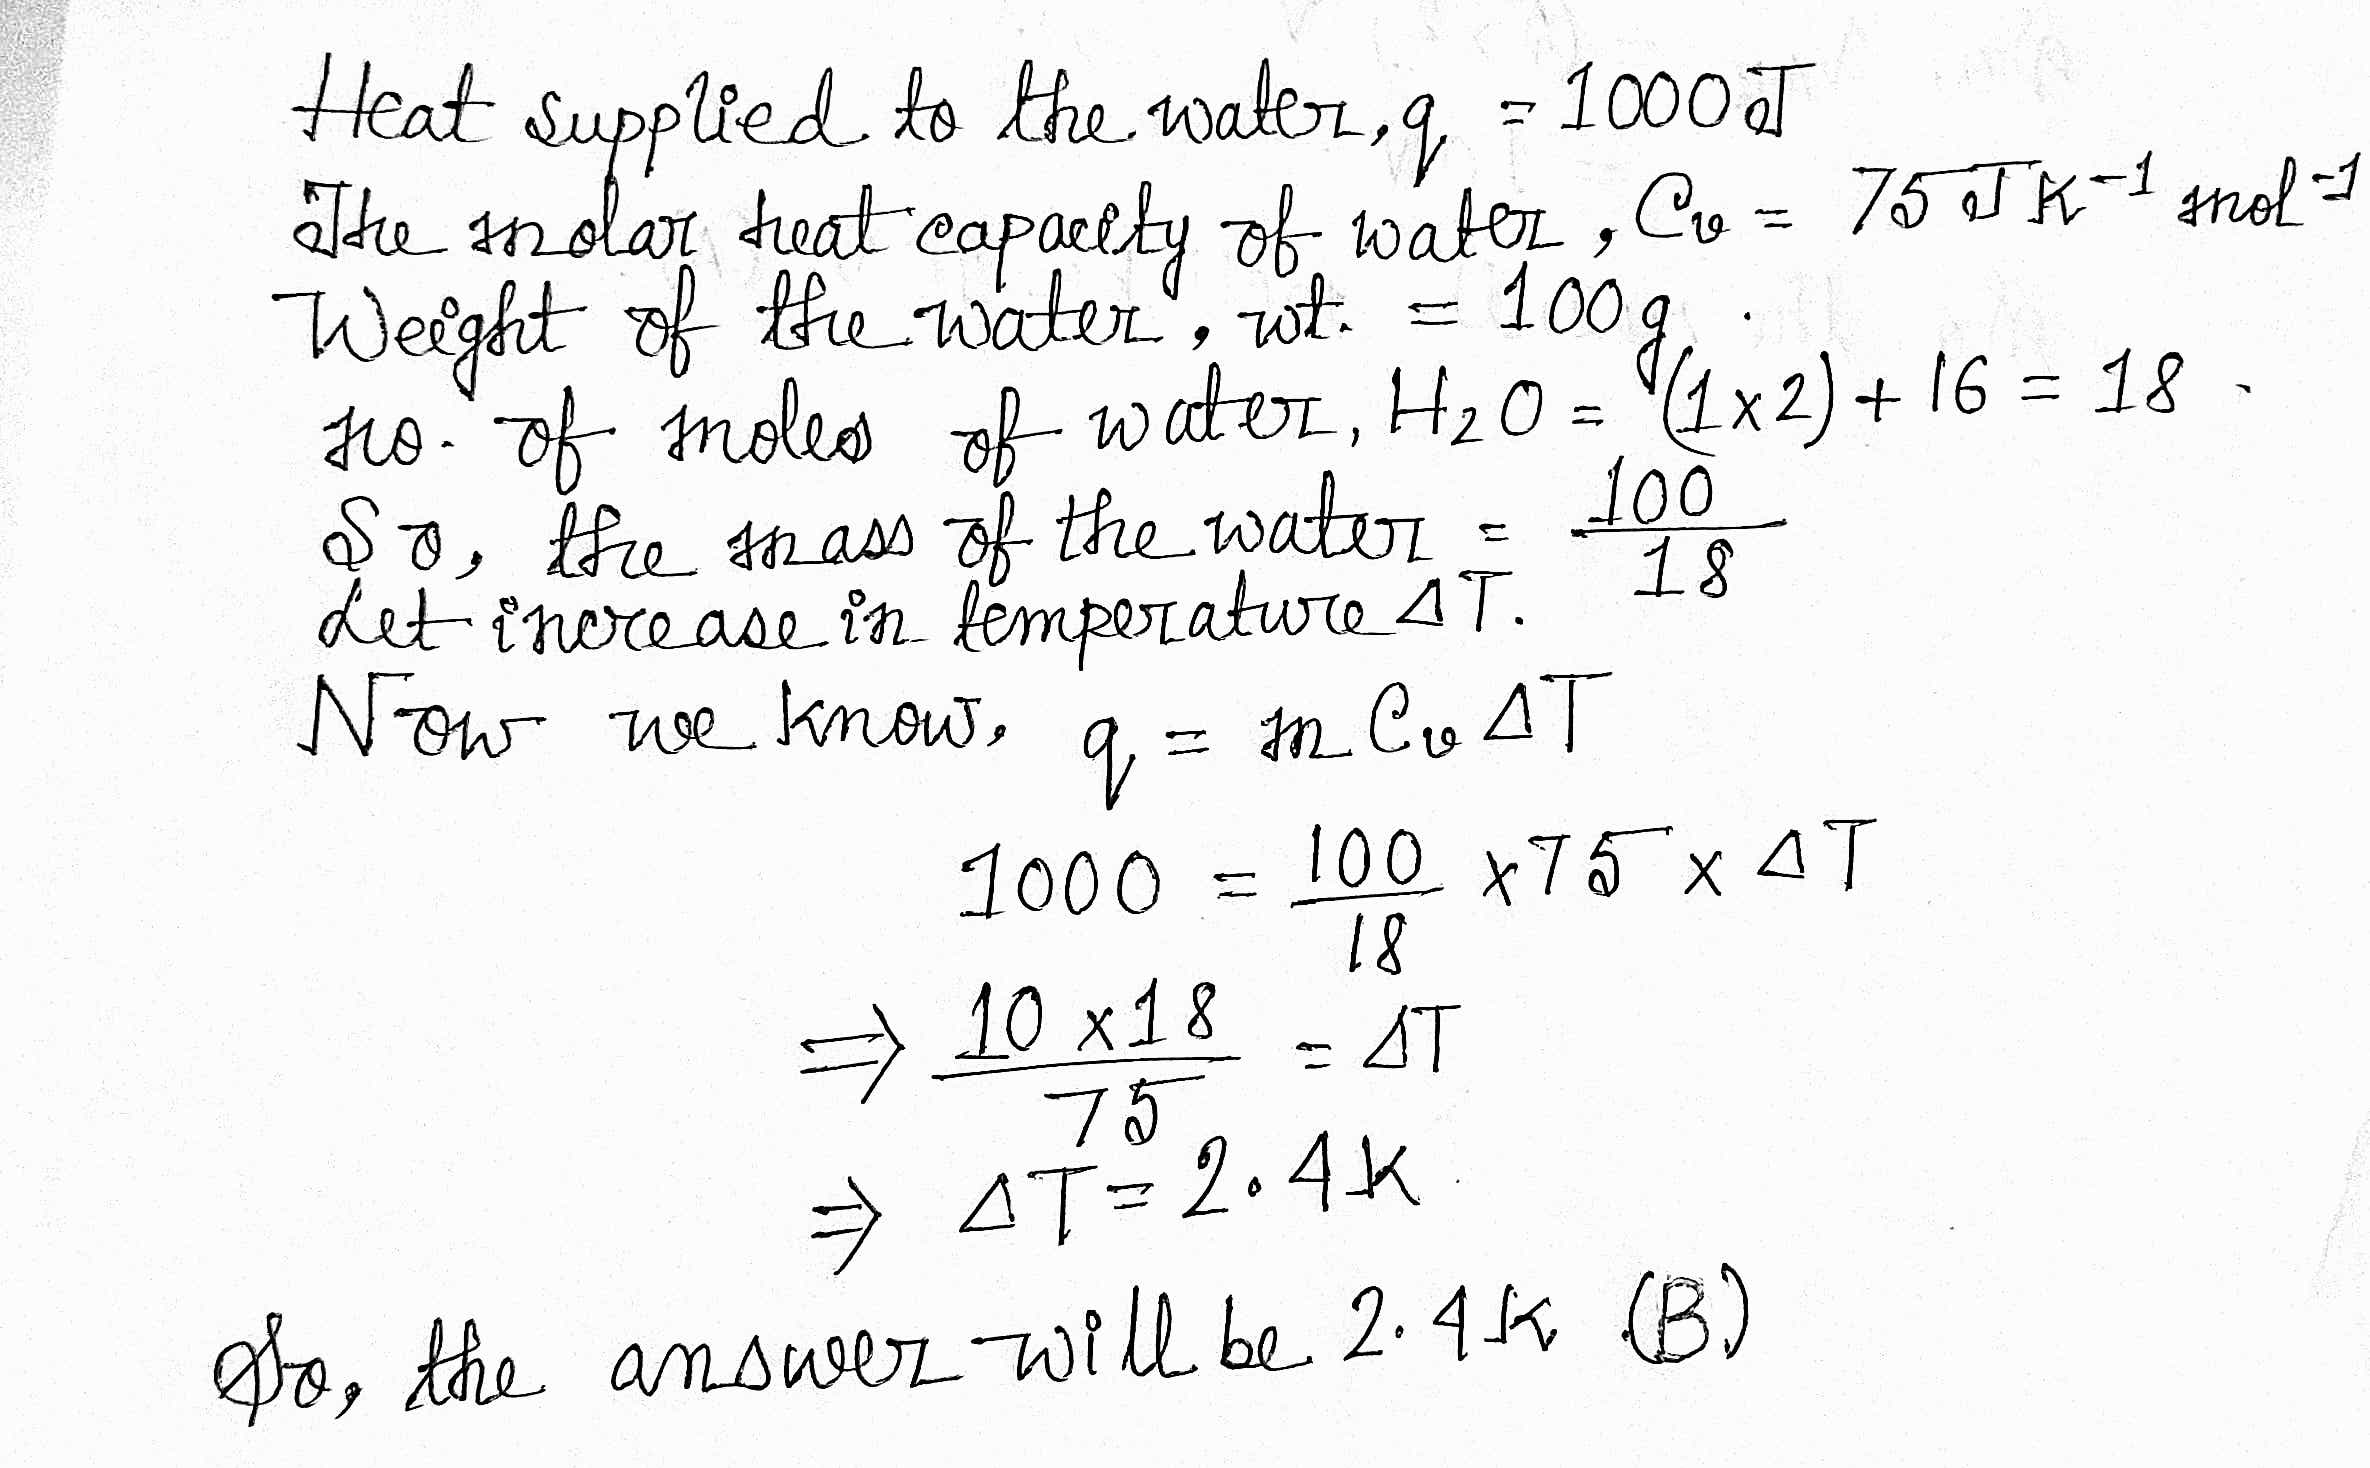 Heat supplied to the water, q = 1000 J
The molar heat capacity of water, Cv = 75 J K⁻¹ mol⁻¹
Weight of the water, wt. = 100g.
no. of moles of water, H₂O = (1×2) + 16 = 18.
So, the mass of the water = 100/18
Let increase in temperature ΔT.
Now we know, q = m Cv ΔT
1000 = 100/18 × 75 × ΔT
⇒ 10 × 18/75 = ΔT
⇒ ΔT = 2.4K
So, the answer will be 2.4K (B)